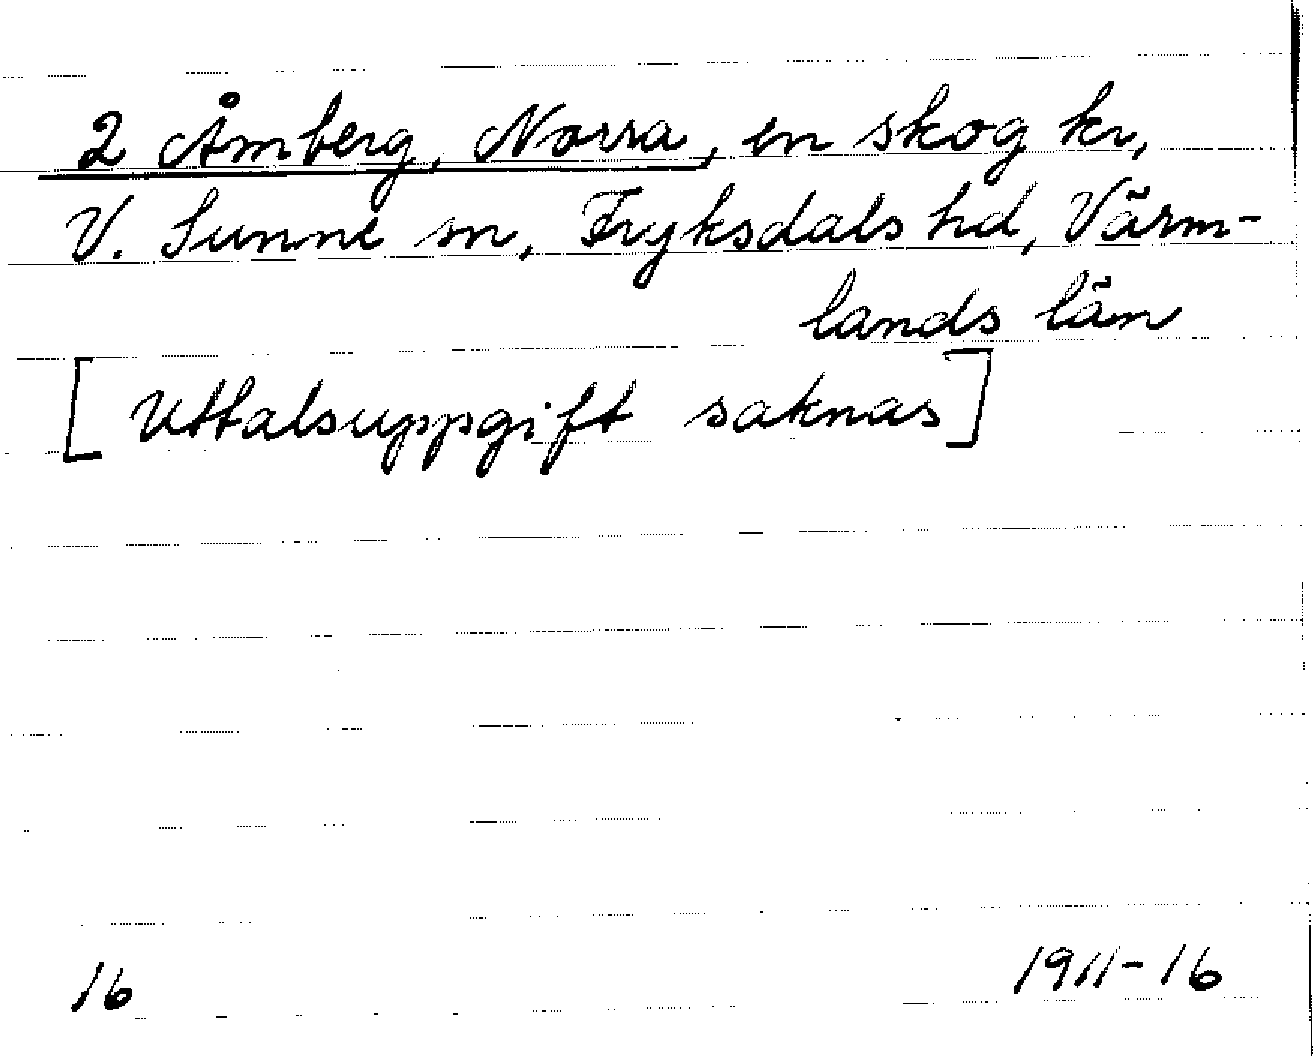 2 Åmberg, Norra, en skog kr,
V. Sunne sn, Fryksdals hd, Värm-
lands län
[Uttalsuppgift saknas]
16 1911-16